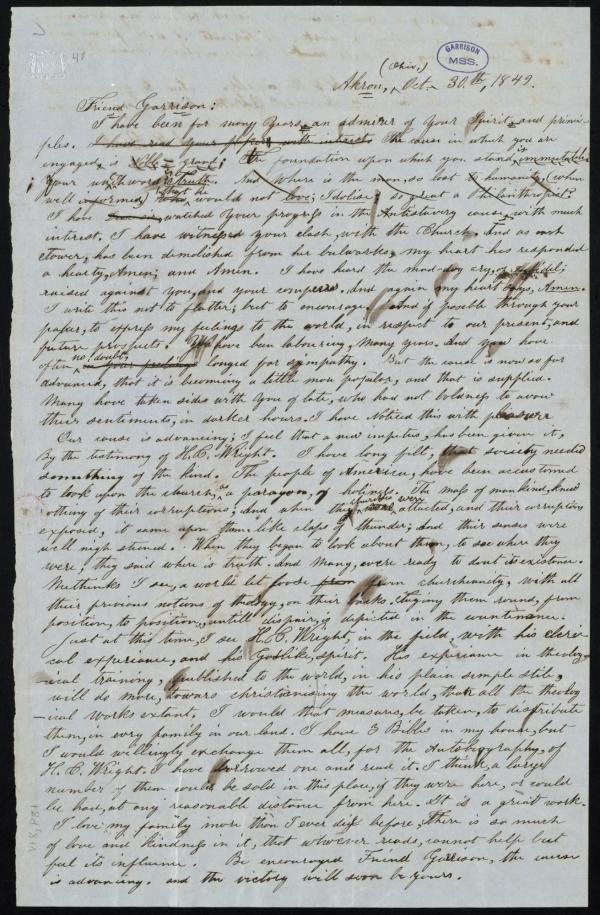 GARRISON
MSS.
(Ohio,)
Akron, Oct. 30th, 1849.
Friend Garrison:
I have been for many years, an admirer of your Spirit, and princi-
ples. I have read your paper with interest The cause in which you are
engaged, is noble grand; the foundation upon which you stand is immutable
your watchword is Truth. And where is the man, so lost to humanity (when
well informed) that he would not love; I idolise; so great a Philanthropist?
I have watched your progress in the Antislavery cause, with much
interest. I have witnessed your clash, with the Church. And as each
tower, has been demolished from her bulwarks, my heart has responded
a hearty, Amen; and Amen. I have heard the mad-dog cry, of infidel;
raised against you, and your compeers. And again my heart says, Amen.
I write this not to flatter; but to encourage; And if posible through your
paper, to express my feelings to the world, in respect to our present, and
future prospects. You have been labouring, many years. And you have
often no doubt, longed for simpathy. But the cause is now so far
advanced, that it is becoming a little more popular, and that is supplied.
Many have taken sides with you of late, who had not boldness to avow
their sentiments, in darker hours. I have Noticed this with pleasure
Our cause is advancing; I feel that a new impetus, has been given it,
By the testimony of H. C. Wright. I have long felt, that society needed
something of the kind. The people of America, have been accustomed
to look upon the church, as a paragon, of holiness. The mass of mankind, knew
nothing of their corruptions; and when the churches were attacted, and their corruptions
exposed, it came upon them like claps of thunder; and their senses were
well nigh stuned. When they began to look about them, to see where they
were; they said where is truth. And Many, were ready to dout its existence.
Methinks I see, a world let loose from churchianity, with all
their previous notions of theology, on their backs. Fluging them round, from
position, to position, untill despair, is depicted in the countenance.
Just at this time, I see H. C. Wright, in the field, with his cleri-
cal experience, and his Godlike, spirit. His experiance in theolog-
ical training, published to the world, in his plain simple stile,
will do more, towars christianising the world, than all the theolog
-ical works extant. I would that measures, be taken, to distribute
them, in evry family in our land. I have 3 Bibles in my house, but
I would willingly exchange them all, for the Autobiography, of
H. C. Wright. I have borrowed one and read it. I think, a large
number of them could be sold in this place, if they were here, or could
be had, at any reasonable distance from here. It is a great work.
I love my family more than I ever did before, there is so much
of love and kindness in it, that whoever reads, cannot help but
feel its influence. Be encouraged Friend Garrison, the cause
is advancing. and the victory will soon be yours.